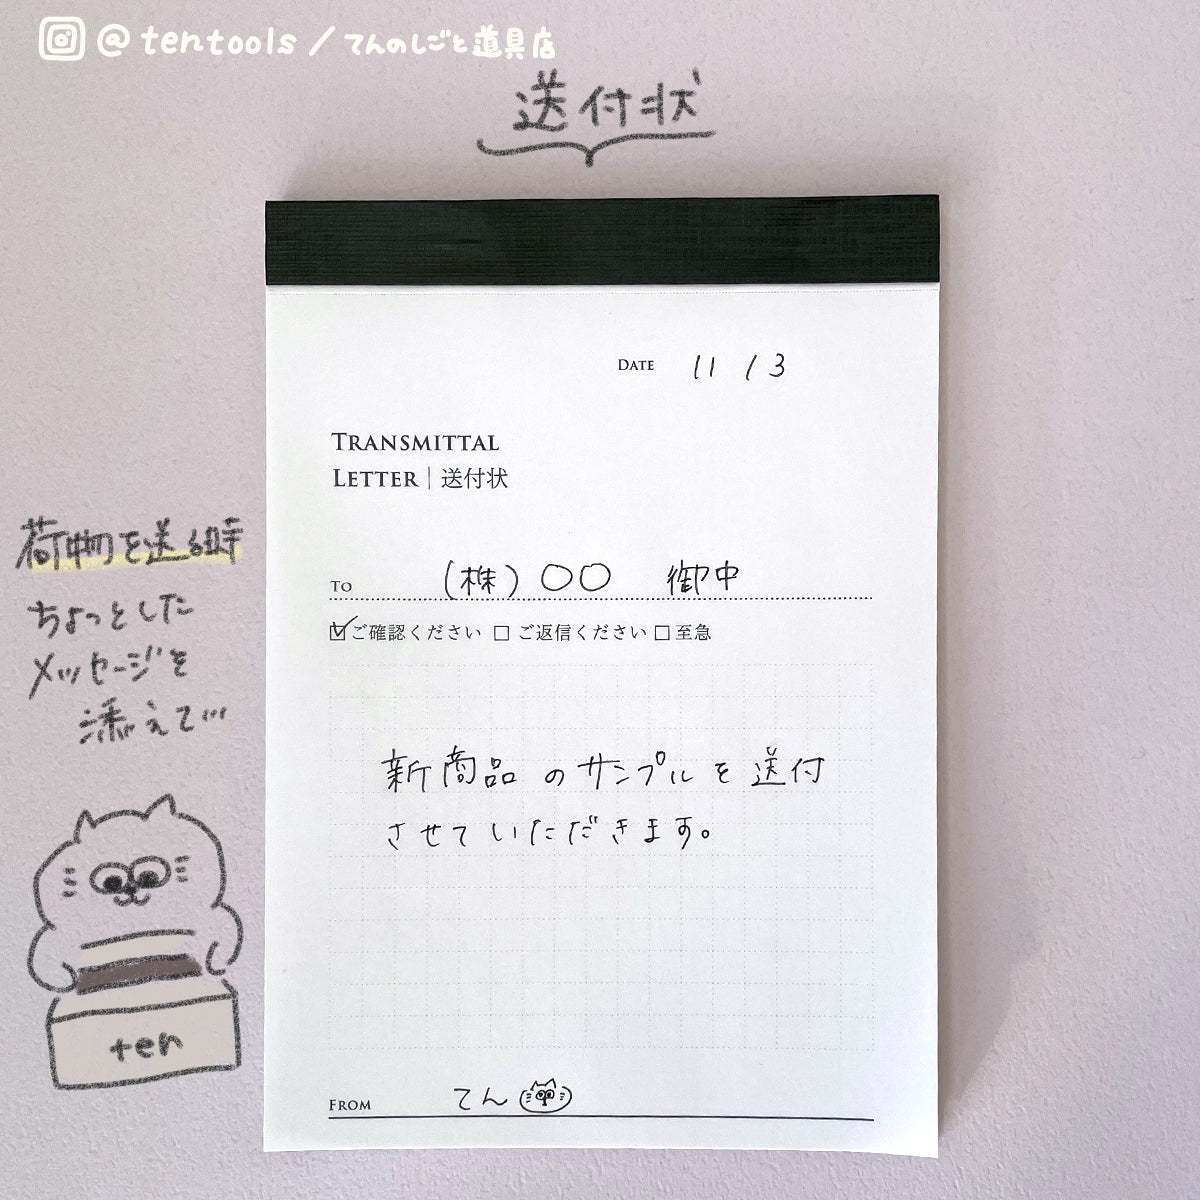 @tentools/てんのしごと道具店
送付状
DATE 11/3
TRANSMITTAL
LETTER｜送付状
TO (株)○○ 御中
☑ご確認ください □ご返信ください □至急
新商品のサンプルを送付
させていただきます。
FROM てん
荷物を送る時
ちょっとした
メッセージを
添えて…
ten